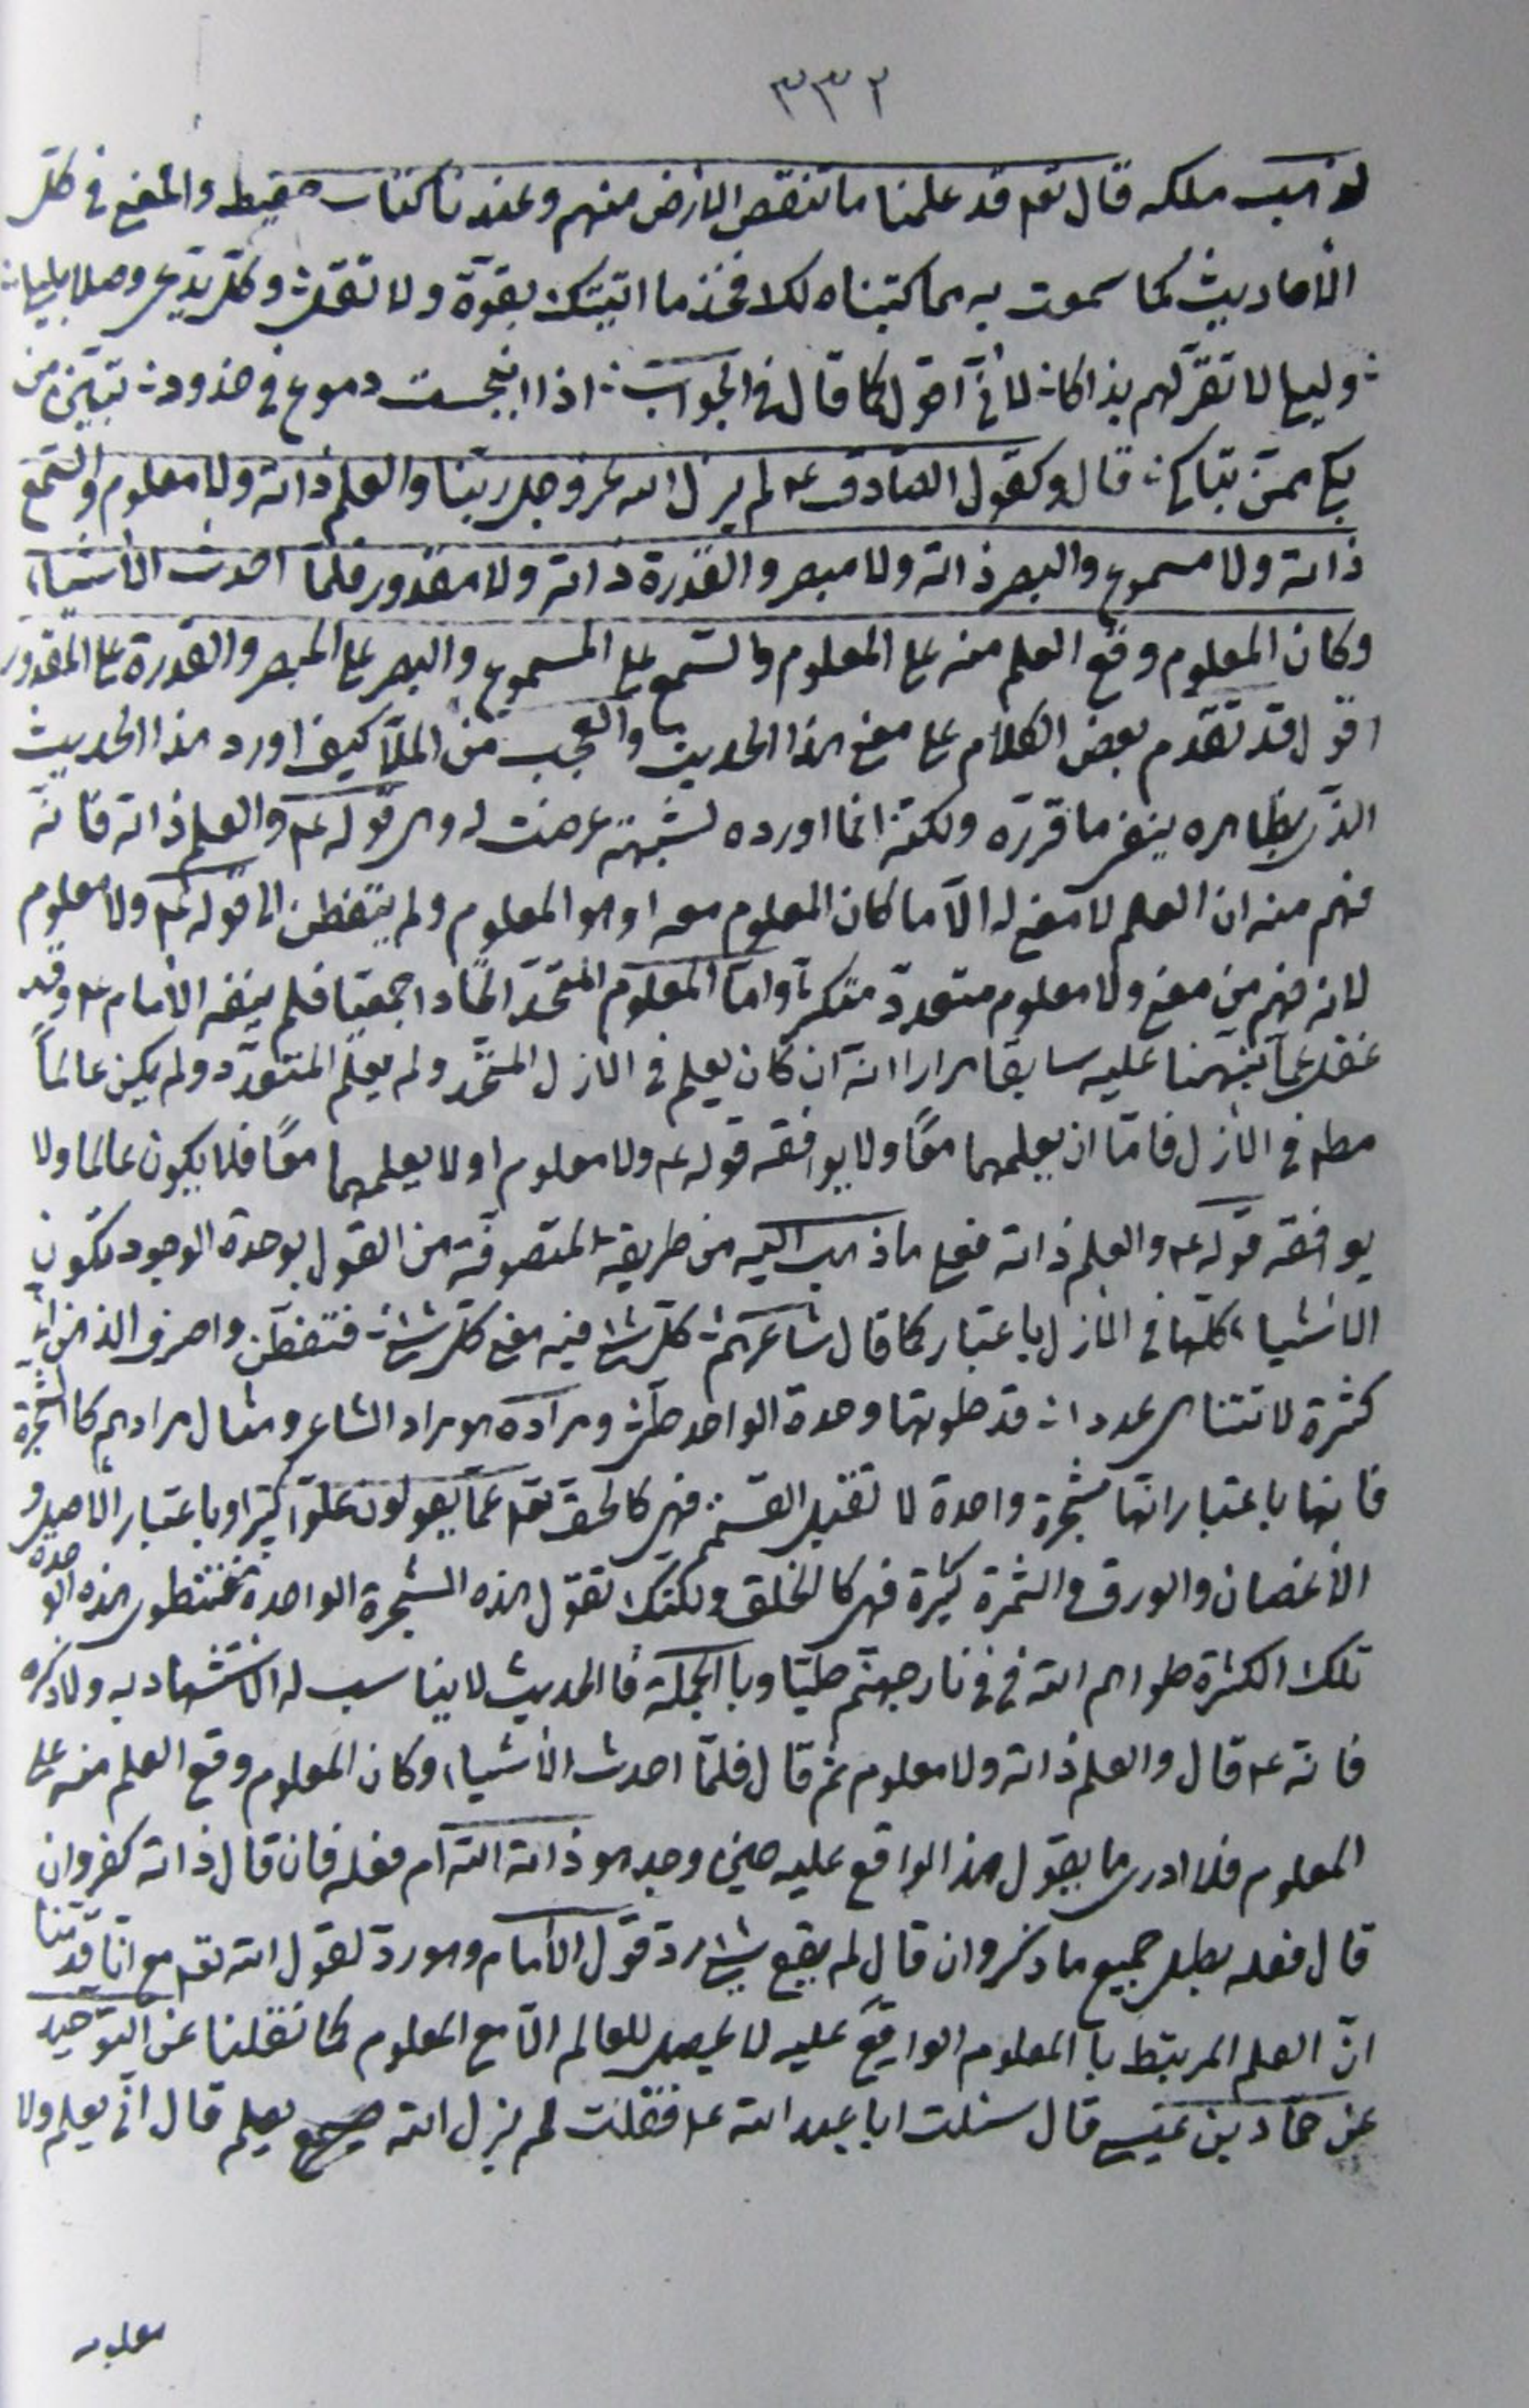 ٣٣٢
لذهب ملكه قال تعه قد علمنا ما تنقص الارض منهم وعندنا كتاب حفيظ والمعنى فى كلّ
الأحاديث كما سمعت به مما كتبناه لك فخذ ما اتيتك بقوّة ولا تقل ؛ وكلّ يدّعى وصلا بليلى ؛
؛ وليلى لا تقرّ لهم بذاكا ؛ لأنّى اقول كما قال فى الجواب ؛ اذا انبجست دموع فى خدود ؛ تبيّن من
بكى ممّن تباكى ؛ قال وكقول الصّادق ع لم يزل الله عزّوجل ربّنا والعلم ذاته ولا معلوم والسّمع
ذاته ولا مسموع والبصر ذاته ولا مبصر والقدرة ذاته ولا مقدور فلمّا احدث الأشياء
وكان المعلوم وقع العلم منه على المعلوم والسّمع على المسموع والبصر على المبصر والقدرة على المقدور
اقول قد تقدّم بعض الكلام على معنى هذا الحديث والعجب من الملّا كيف اورد هذا الحديث
الذى بظاهره ينفى ما قرّره ولكنّه انّما اورده لشبهة عرضت له وهى قوله ع والعلم ذاته فانّه
فهم منه ان العلم لا معنى له الّا ما كان المعلوم معه او هو المعلوم ولم يتفطّن الى قوله ع ولا معلوم
لانه فهم من معنى ولا معلوم متعدّد متكثّر وامّا المعلوم المتّحد اتّحادا جمعيّا فلم ينفه الأمام ع وقد
غفل عمّا نبّهنا عليه سابقا مرارا انّه ان كان يعلم فى الازل المتّحد ولم يعلم المتعدّد ولم يكن عالماً
مطه فى الأزل فامّا ان يعلمهما معًا ولا يوافقه قوله ع ولا معلوم او لا يعلمهما معًا فلا يكون عالما ولا
يوافقه قوله ع والعلم ذاته فعلى ما ذهب اليه من طريقة المتصوّفة من القول بوحدة الوجود تكون
الاشياء كلّها فى الازل باعتبار كما قال شاعرهم ؛ كلّ شئ فيه معنى كلّ شئ ؛ فتفطّن واصرف الذهن الىّ
كثرة لا تتناهى عددا ؛ قد طوتها وحدة الواحد طىّ ؛ ومراده هو مراد الشاعر ومثال مرادهم كالشّجرة
فانها باعتبار انّها شجرة واحدة لا تقبل القسمة فهى كالحق تعه عمّا يقولون علوّا كبيرا وباعتبار الأصل و
الأغصان والورق والثمرة كثيرة فهى كالخلق ولكنّك تقول هذه الشجرة الواحدة فتنطوى هذه الوحدة
تلك الكثرة طواهم الله فى نار جهنّم طيّا وبالجملة فالحديث لا يناسب له الأستشهاد به ولا ذكره
فانه ع قال والعلم ذاته ولا معلوم ثم قال فلمّا احدث الأشياء وكان المعلوم وقع العلم منه على
المعلوم فلا ادرى ما يقول هذا الواقع عليه حين وجد هو ذاته الله ام فعله فان قال ذاته كفر وان
قال فعله بطل جميع ما ذكر وان قال لم يقع شئ ردّ قول الأمام وهو ردّ لقول الله تعه مع انّا قدّمنا
انّ العلم المرتبط بالمعلوم الواقع عليه لا يحصل للعالم الّا مع المعلوم كما نقلنا عن التوحيد
عن حمّاد بن عيسى قال سئلت ابا عبد الله ع فقلت لم يزل الله يعلم قال انّى يعلم ولا
معلوم